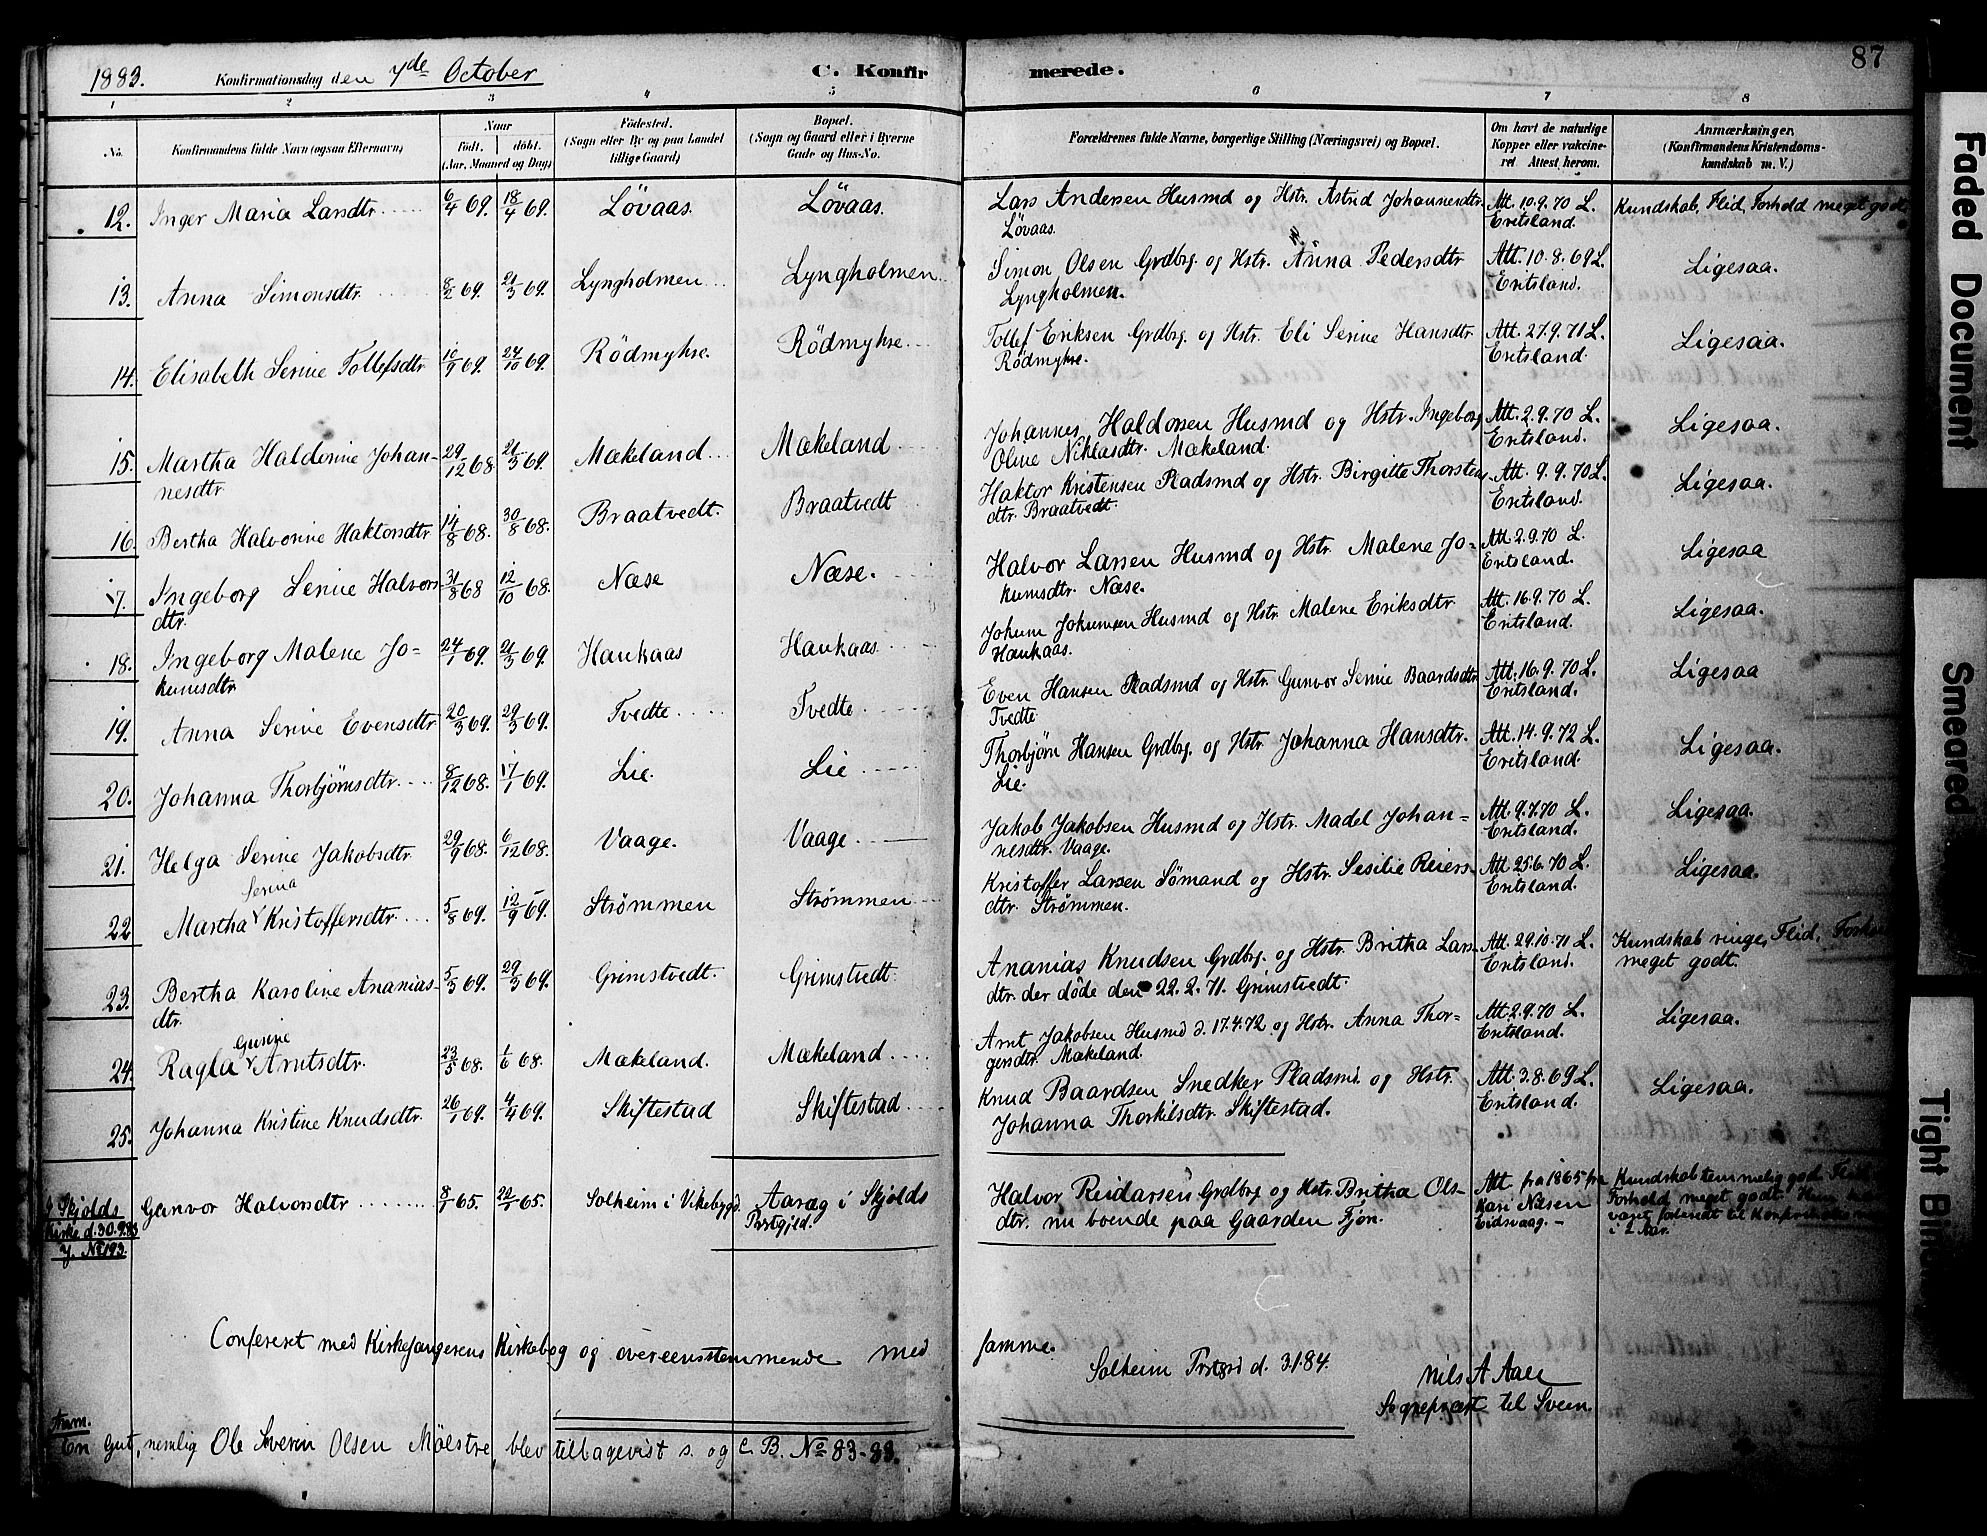 1883. Konfirmationsdag den 7de October C. Konfirmerede. 87
1 2 3 4 5 6 7 8
No. Konfirmandens fulde Navn (ogsaa Efternavn) Naar født. døbt. (Aar, Maaned og Dag) Fødested. (Sogn eller By og paa Landet tillige Gaard) Bopæl. (Sogn og Gaard eller i Byerne Gade og Hus-No. Forældrenes fulde Navne, borgerlige Stilling (Næringsvei) og Bopæl. Om havt de naturlige Kopper eller vakcineret Attest herom. Anmærkninger. (Konfirmandens Kristendomskundskab m. V.)
12. Inger Maria Larsdtr 6/4 69. 18/4 69. Lövaas. Lövaas. Lars Andersen Husmd og Hstr. Astrid Johannesdtr Lövaas. Att. 10.9.70 L. Eritsland. Kundskab, Flid, Forhold meget godt
13. Anna Simonsdtr 8/2 69. 21/3 69. Lyngholmen Lyngholmen Simon Olsen Grdbrg. og Hstr. Anna Pedersdtr Lyngholmen. Att. 10.8.69 L. Eritsland. Ligesaa.
14. Elisabeth Serine Tollefsdtr 10/9 69. 24/10 69. Rödmykre. Rödmykre Tollef Eriksen Grdbrg. og Hstr. Eli Serine Hansdtr Rödmykre. Att. 27.9.71 L. Eritsland. Ligesaa.
15. Martha Haldorine Johannesdtr 29/12 68. 21/3 69. Mækeland Mækeland Johannes Haldorsen Husmd og Hstr. Ingeborg Oline Niklasdtr. Mækeland. Att. 2.9.70 L. Eritsland. Ligesaa.
16. Bertha Halvorine Haktorsdtr 14/8 68. 30/8 68. Braatvedt. Braatvedt Haktor Kristensen Pladsmd og Hstr. Birgitte Thorstensdtr. Braatvedt. Att. 9.9.70 L. Eritsland. Ligesaa.
17. Ingeborg Serine Halvorsdtr. 31/8 68 12/10 68. Næse Næse. Halvor Larsen Husmd og Hstr. Malene Jokumsdtr. Næse. Att. 2.9.70 L. Eritsland. Ligesaa
18. Ingeborg Malene Jokumsdtr 24/1 69. 21/3 69. Haukaas Haukaas Jokum Jokumsen Husmd og Hstr Malene Eriksdtr Haukaas. Att. 16.9.70 L. Eritsland. Ligesaa.
19. Anna Serine Evensdtr 20/3 69. 29/3 69. Tvedte Tvedte Even Hansen Pladsmd og Hstr. Gunvor Serine Baardsdtr Tvedte. Att. 16.9.70 L. Eritsland. Ligesaa
20. Johanna Thorbjörnsdtr. 8/12 68. 17/1 69. Lie. Lie Thorbjørn Hansen Grdbrg. og Hstr. Johanna Hansdtr. Lie. Att. 14.9.72 L. Eritsland. Ligesaa.
21. Helga Serine Jakobsdtr 29/9 68. 6/12 68. Vaage. Vaage. Jakob Jakobsen Husmd og Hstr. Madel Johannesdtr. Vaage. Att. 9.7.70 L. Eritsland. Ligesaa.
22 Martha Serina Kristoffersdtr. 5/8 69. 12/9 69. Strømmen Strømmen Kristoffer Larsen Sömand og Hstr. Sesilie Reiersdtr. Strømmen. Att. 25.6.70 L. Eritsland. Ligesaa.
23. Bertha Karoline Ananiasdtr. 5/3 69. 29/3 69. Grimstvedt. Grimstvedt Ananias Knudsen Grdbrg. og Hstr. Britha Larsdtr. der døde den 22.2.71. Grimstvedt. Att. 29.10.71 L. Eritsland. Kundskab ringe, Flid, Forhold meget godt.
24. Ragla Gurine Arntsdtr. 23/5 68. 1/6 68. Mækeland. Mækeland Arnt Jakobsen Husmd d. 17.4.72 og Hstr. Anna Thorgersdtr. Mækeland. Att. 2.9.70 L. Eritsland. Ligesaa.
25. Johanna Kristine Knudsdtr. 26/1 69. 4/4 69. Skiftestad Skiftestad Knud Baardsen Snedker Pladsmd. og Hstr. Johanna Thorkilsdtr. Skiftestad. Att. 3.8.69 L. Eritsland. Ligesaa.
I Skjolds Kirke d. 30.9.83 J. No 193. Gunvor Halvorsdtr 8/1 65. 22/1 65. Solheim i Vikebygd. Aarag i Skjolds Prstgjeld. Halvor Reidarsen Grdbrg og Hstr. Britha Olsdtr. nu boende paa Gaarden Fjøn. Att fra 1865 fra Kari Nilsen Eidsvaag. Kundskab temmelig god. Flid Forhold meget godt. Hun har været forberedt til Konfirmation i 2 Aar.
Confereret med Kirkesangerens Kirkebog og overeensstemmende med samme.
Solheim Prstgrd d. 3.1.84. Nils A Aall
Sognepræst til Sveen.
Anm.
En Gut, nemlig Ole Severin Olsen Mölstre, blev tilbagevist s. og C. B. No 83-83.
Faded Document
Smeared
Tight Bin